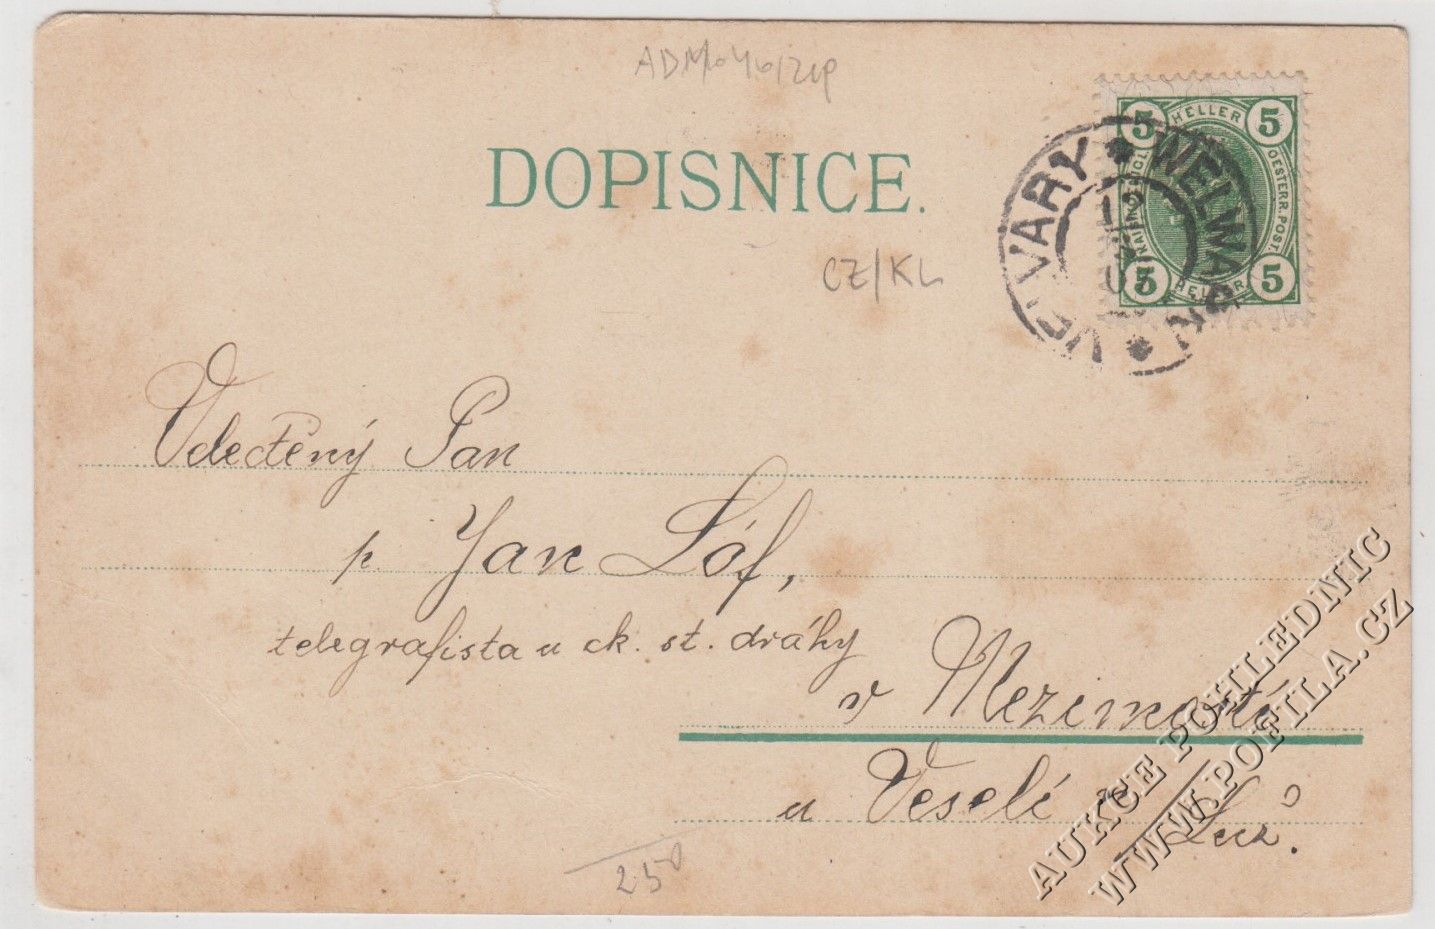 DOPISNICE.
CZ/KL
5 HELLER 5
OESTERR. POST.
5 HELLER 5
VELVARY * WELWARN *
12
Vdectěný Pan
p. Jan Lóf,
telegrafista u ck. st. dráhy
v Mezimostí
u Veselí n/Luž.
250
AUKCE POHLEDNIC
WWW.POFILA.CZ